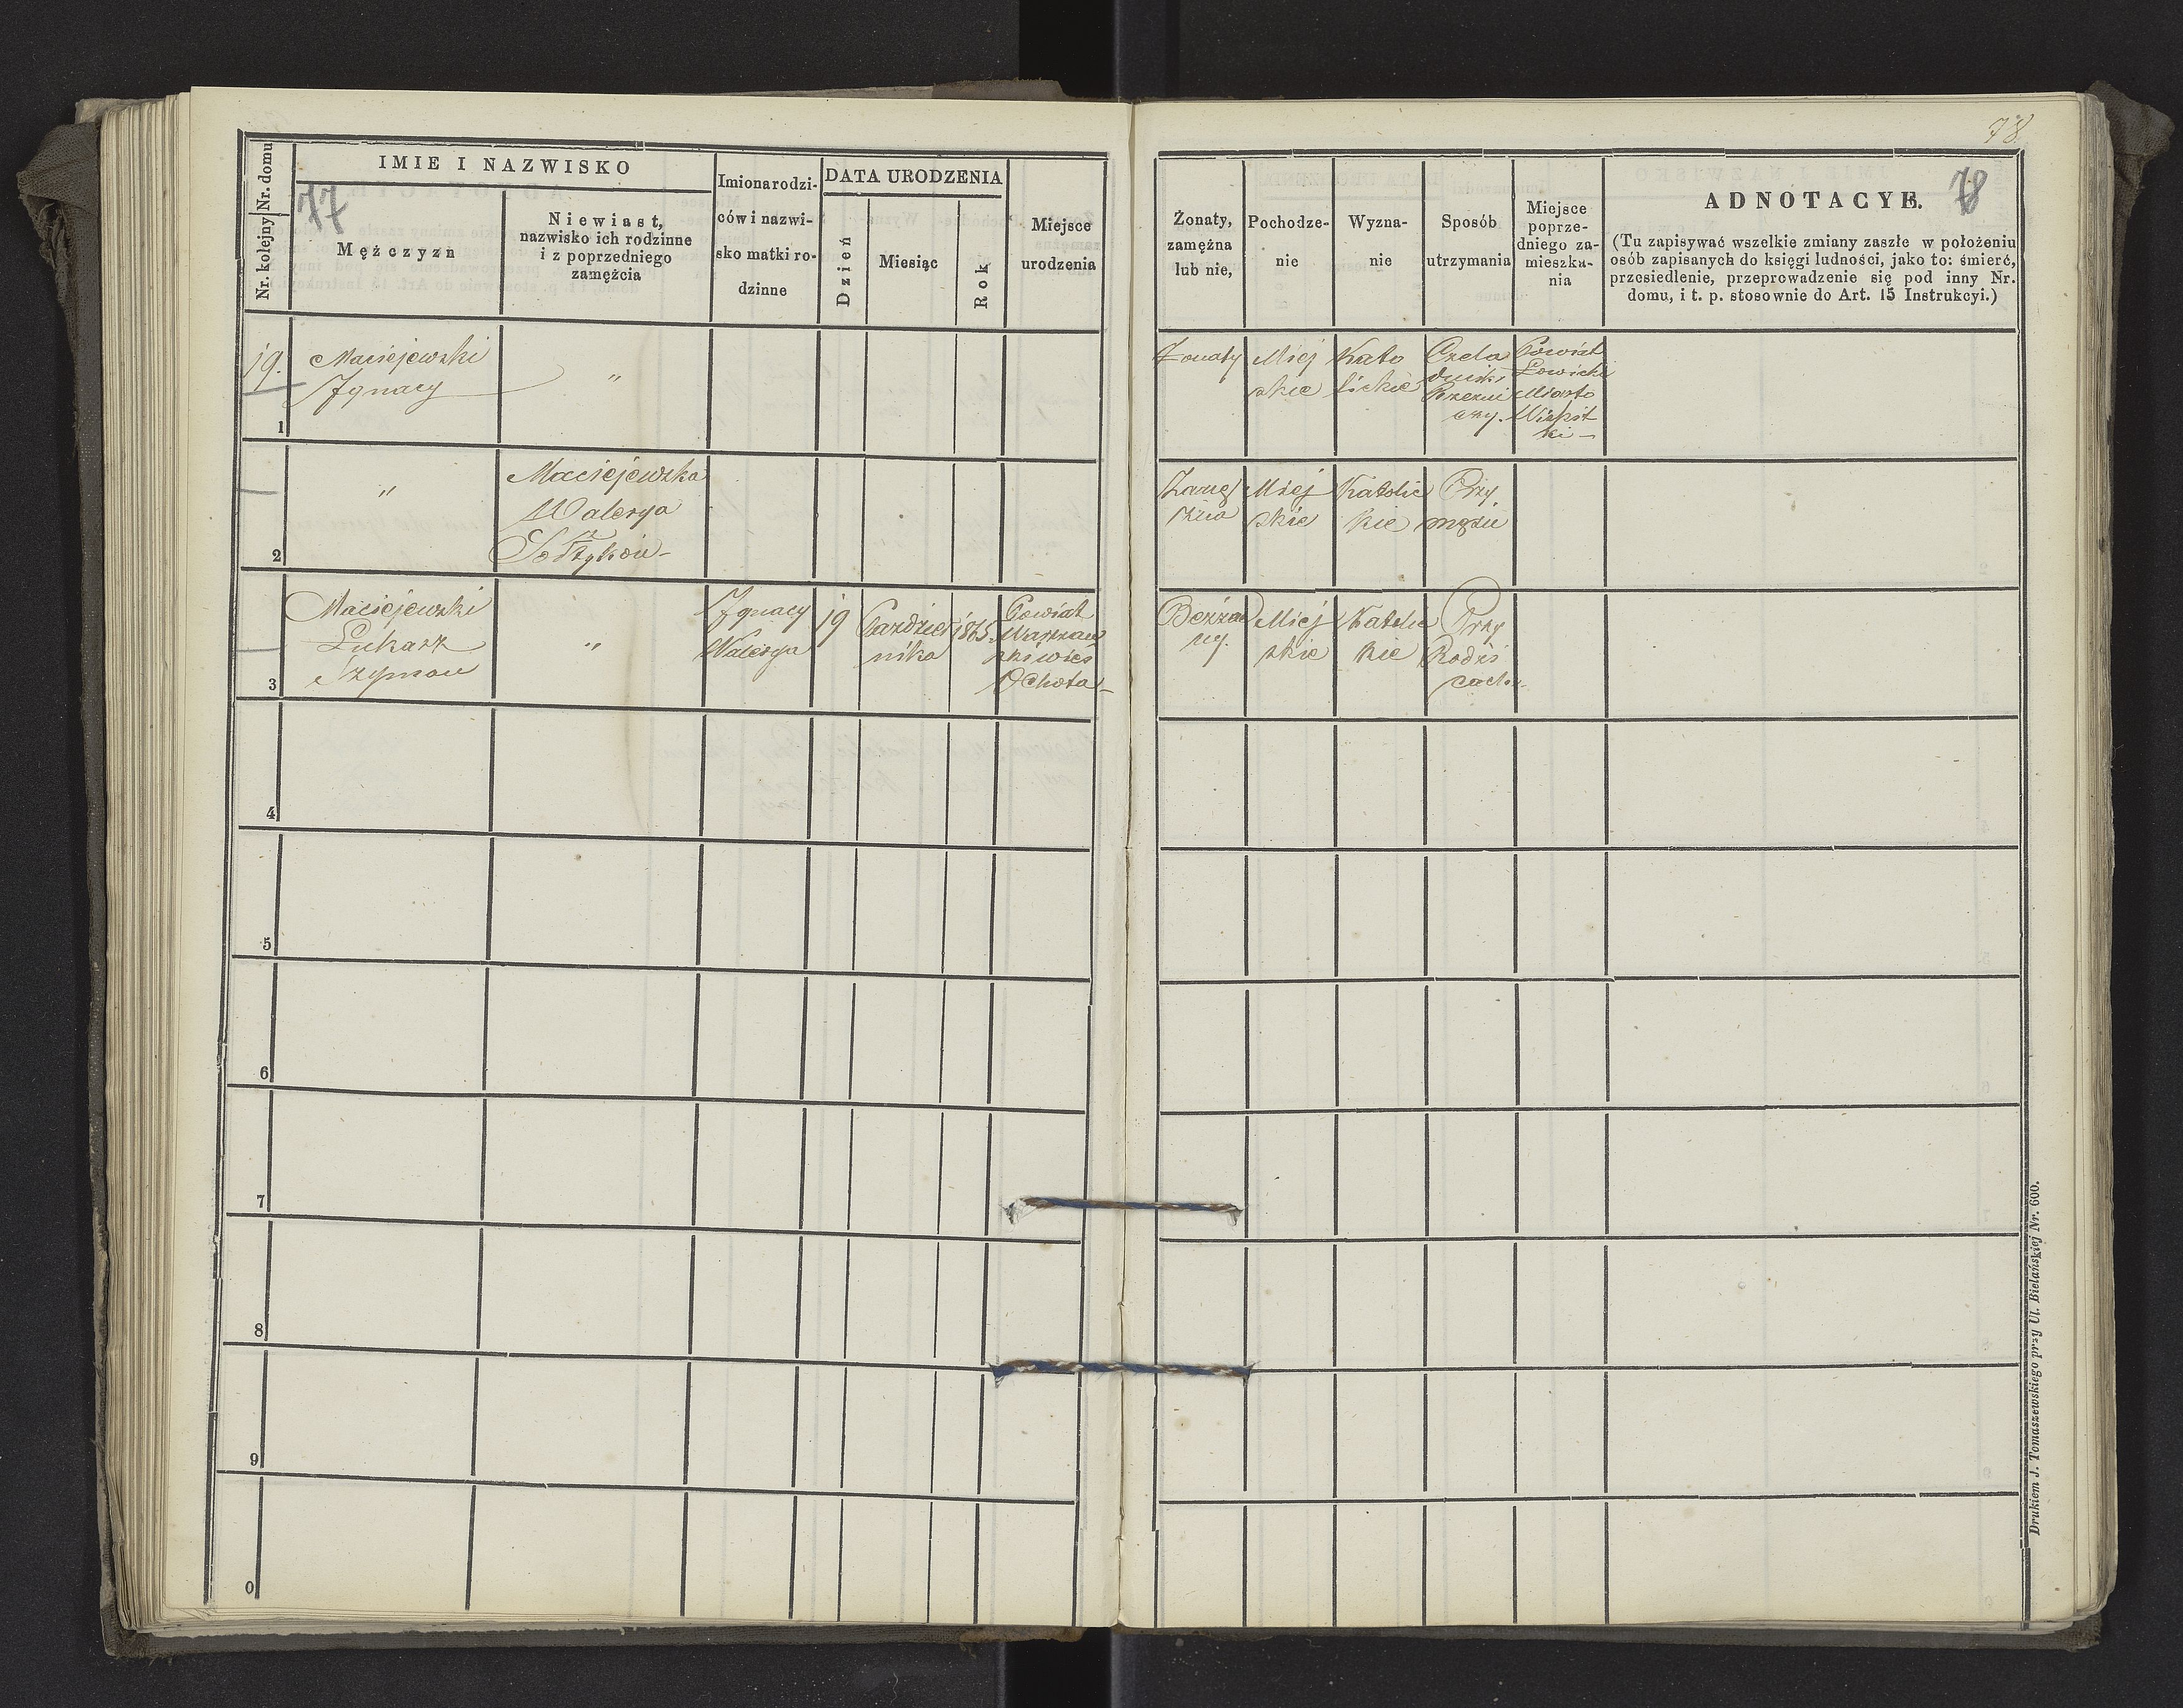 78.
Nr. domu
Nr. kolejny
IMIE I NAZWISKO
77
Mężczyzn
Niewiast,
nazwisko ich rodzinne
i z poprzedniego
zamęźcia
Imiona rodzi-
ców i nazwi-
sko matki ro-
dzinne
DATA URODZENIA
Dzień
Miesiąc
Rok
Miejsce
urodzenia
Żonaty,
zamęźna
lub nie,
Pochodze-
nie
Wyzna-
nie
Sposób
utrzymania
Miejsce
poprze-
dniego za-
mieszka-
nia
ADNOTACYE.
78
(Tu zapisywać wszelkie zmiany zaszłe w położeniu
osób zapisanych do księgi ludności, jako to: śmierć,
przesiedlenie, przeprowadzenie się pod inny Nr.
domu, i t. p. stosownie do Art. 15 Instrukcyi.)
19.
1
Maciejewski
Ignacy
"
Żonaty
Miej
skie
Kato
lickie
Czela
dnik
Rzeźni
czy.
Powiat
Łowicki
Miasto
Wiskit
ki
2
"
Maciejewska
Walerya
z
Sołtyków
Zamę
żna
Miej
skie
Katolic
kie
Przy
mężu
3
Maciejewski
Łukasz
Szymon
"
Ignacy
Walerya
19
Paździer
nika
1865
Powiat
Warszaw
ski wieś
Ochota
Bezżen
ny.
Miej
skie
Katolic
kie
Przy
Rodzi
cach.
4
5
6
7
8
9
0
Drukiem J. Tomaszewskiego przy Ul. Bielańskiej Nr. 600.